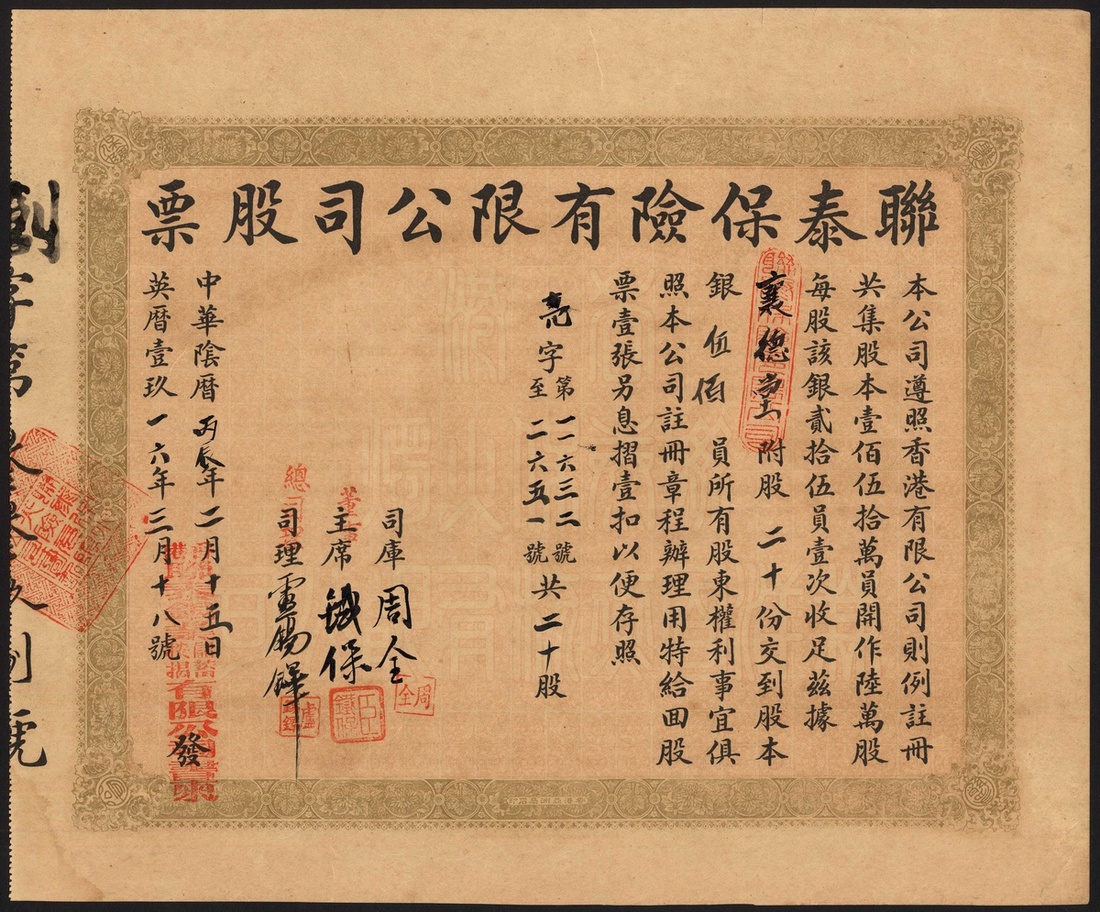 聯泰保險有限公司股票
本公司遵照香港有限公司則例註冊
共集股本壹佰伍拾萬員開作陸萬股
每股該銀貳拾伍員壹次收足茲據
襄德堂附股二十份交到股本
銀伍佰員所有股東權利事宜俱
照本公司註冊章程辦理用特給回股
票壹張另息摺壹扣以便存照
字第一一六三二號
至二六五一號共二十股
司庫周全
周全
董事
主席鐵保
總司理
中華陰曆丙辰年二月十五日
英曆壹玖一六年三月十八號發